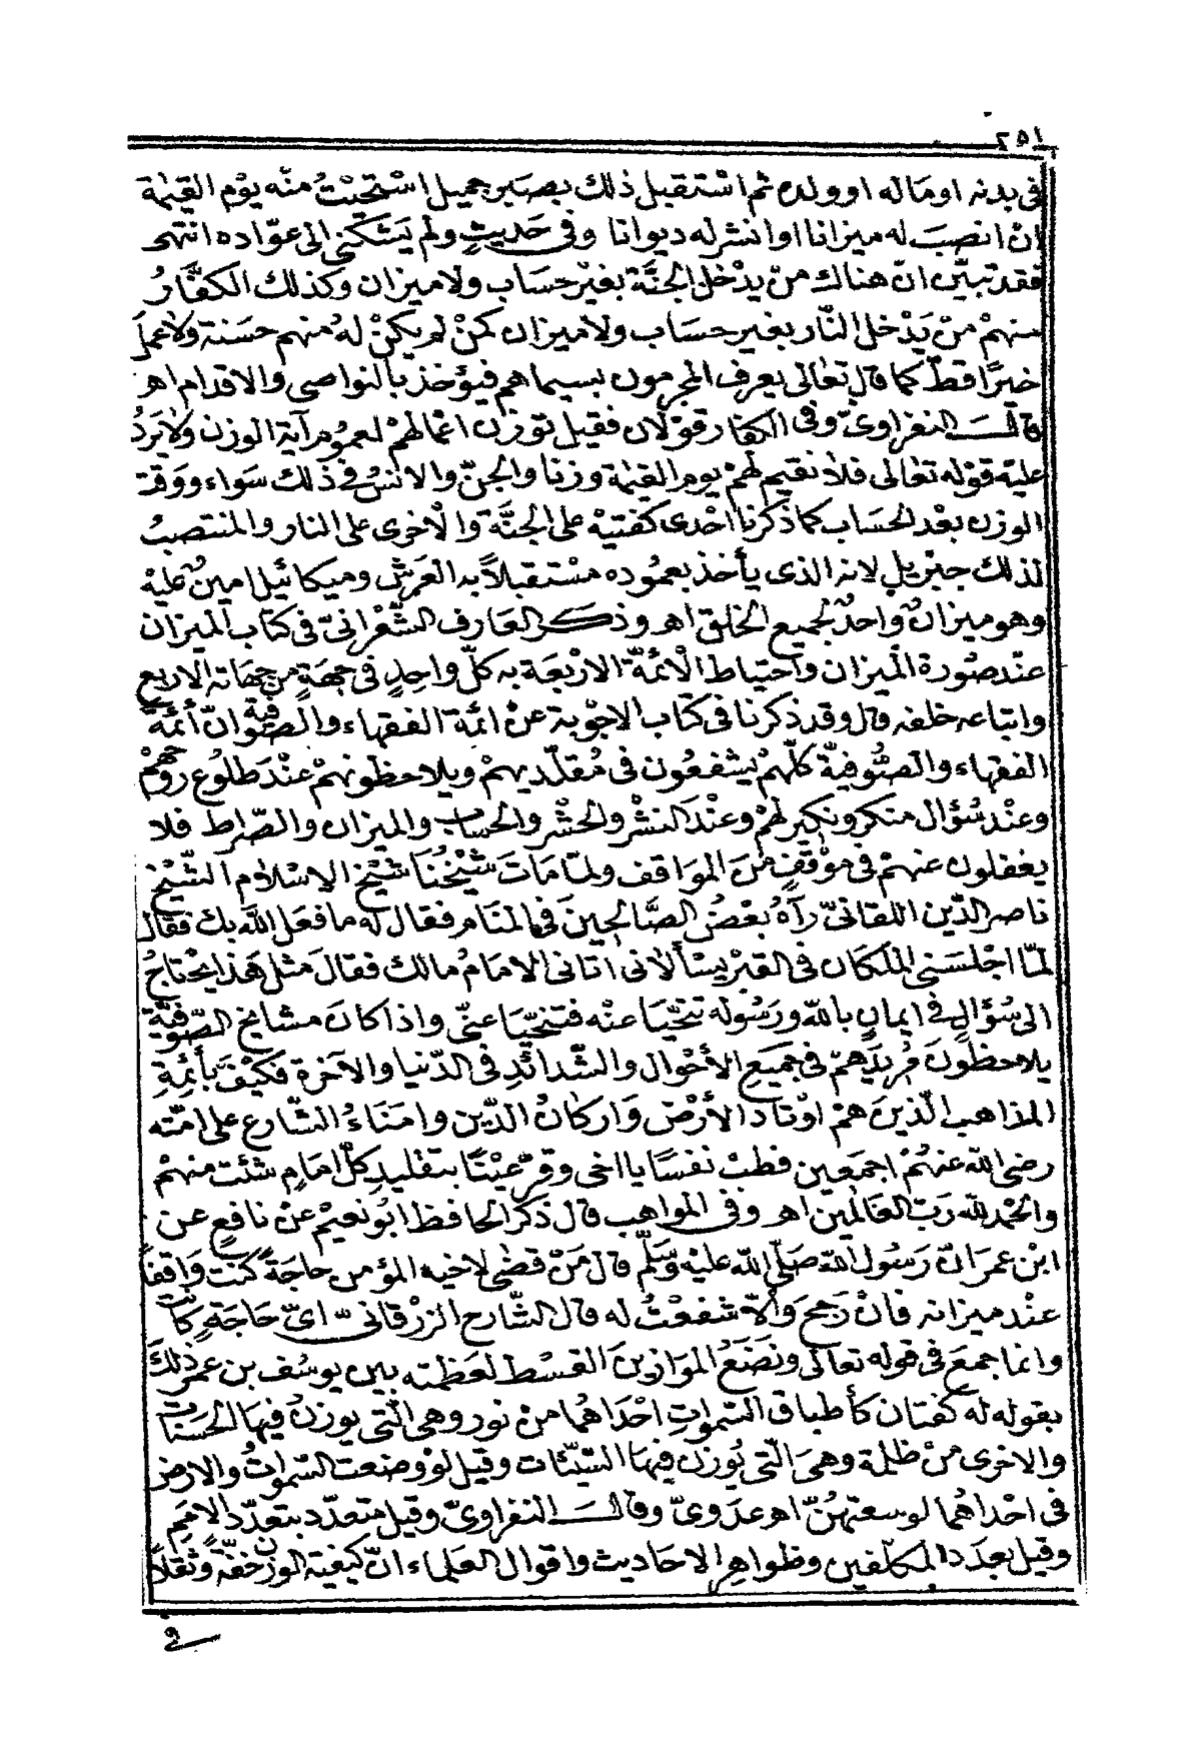 ٢٥١
فى بدنه او ماله او ولده ثم استقبل ذلك بصبر جميل اسْتَحْيَيْتُ منه يوْم القيٰمة
انْ انصبَ له ميزانا او انشر له ديوانا وفى حَديثٍ ولم يَشكنى الى عوّاده انتهى
فقد تبيّن انّ هناك منْ يدْخل الجنَّة بغيْر حسَاب ولا ميزان وكذلك الكفَّارُ
منهمْ منْ يَدْخل النّار بغير حسَاب ولا ميزان كمنْ لم يكنْ لهُ منهم حسَنة ولا عملَ
خيرًا قطّ كما قال تعَالى يعرف المجرمون بسيماهم فيؤخذ بالنواصى والاقدام اهـ
قالـــ النفراوىّ وفى الكفار قوْلان فقيل توْزن اعْمالهمْ لعمُوم آية الوزن ولا يَردُ
عليْه قوْله تعَالى فلا نقيم لهمْ يوم القيٰمة وزنا والجنّ والانسُ فى ذلك سَواء ووَقت
الوزن بعْد الحسَاب كما ذكرنا احْدى كفتيْه على الجنَّة والْاخرى على النار والمنتصبُ
لذلك جبْريل لانه الذى يأخذ بعمُوده مسْتقبلاً به العَرش وميكائيل امينٌ عليْه
وهو ميزانٌ واحدٌ لجميع الخلق اهـ وذكر العَارف الشّعْرانىّ فى كتاب الميزان
عنْد صُورة الْميزان واحتياط الْائمّة الارْبعَة به كلّ واحِدٍ فى جهَةٍ من جهَاته الاربع
واتباعه خلفه قال وقد ذكرنا فى كتاب الاجْوبة عنْ ائمّة الفقهاء والصّوفية انّ أئمّة
الفقهاء والصُّوفيّة كلّهمْ يشفعُون فى مُقلّديهمْ ويلاحظونهمْ عنْدَ طلوُع روُحهمْ
وعنْد سُؤال منكر ونكير لهمْ وعنْدَ النشْر والحشْر والحسَاب والميزان والصّراط فلا
يغفلون عنهمْ فى موْقفٍ منَ المَواقف ولمّا مَاتَ شيْخُنَا شيْخ الاسْلام الشّيْخ
ناصر الدّين اللقانىّ رآهُ بعْضُ الصَّالحينَ فى المنَام فقال له ما فعَل اللهَّ بك فقال
لمّا اجْلسَنى الملكان فى القبْر ليسْألانى اتانى الامامُ مالك فقالَ مثل هَذا يحْتاجُ
الى سُؤالٍ فى ايمانٍ بالله ورَسُوله تنحّيَا عنْه فتنحَّيَا عنّى واذا كانَ مشايخ الصّوفيّة
يلاحظونَ مُريدَهمْ فى جميع الأحْوال والشّدائدِ فى الدّنيا والآخرة فكيْفَ بأئمّةِ
المذاهب الّذينَ همْ اوْتادُ الأرْض وَاركانُ الدّين وامَنَاءُ الشّارع على امّته
رضى الله عنهُمْ اجمَعين فطبْ نفسًا يا اخى وقرّ عيْنًا بتقليدِ كلّ امَامٍ شئت منهمْ
والحمْد لله رَبّ العَالمين اهـ وفى المواهب قال ذكر الحافظ ابُو نعيْم عنْ نافعٍ عن
ابْن عمر انّ رَسُول الله صَلّى الله عليْه وسَلّم قال منْ قضٰى لاخيه المؤمن حاجَةً كنت وَاقفًا
عنْد ميزانه فانْ رَجحَ وَالاّ شفعْتُ له قال الشّارح الزرْقانىّ اىّ حَاجَةٍ كانت
وانما جمعَ فى قوله تعالى ونَضَعُ الموَازينَ القسْط لعَظمته بين يوسُف بن عمر ذلكَ
بقوله له كفتان كأطباق السّمواتِ احْدَاهُمَا منْ نور وهى الّتى يوزنُ فيهَا الحَسَنات
والاخرى منْ ظلمة وهىَ الّتى يُوزن فيهَا السّيّئات وقيل لوْ وضعت السّمواتُ والارض
فى احْداهُما لوسعتهُنّ اهـ عدَوىّ وقالـــ النفراوىّ وقيل متعدّد بتعدّد الاممِ
وقيل بعدَد المكلّفين وظواهِر الاحاديث واقوال العلماء انّ كيْفية الوزن خفّة وثقلاً
فى